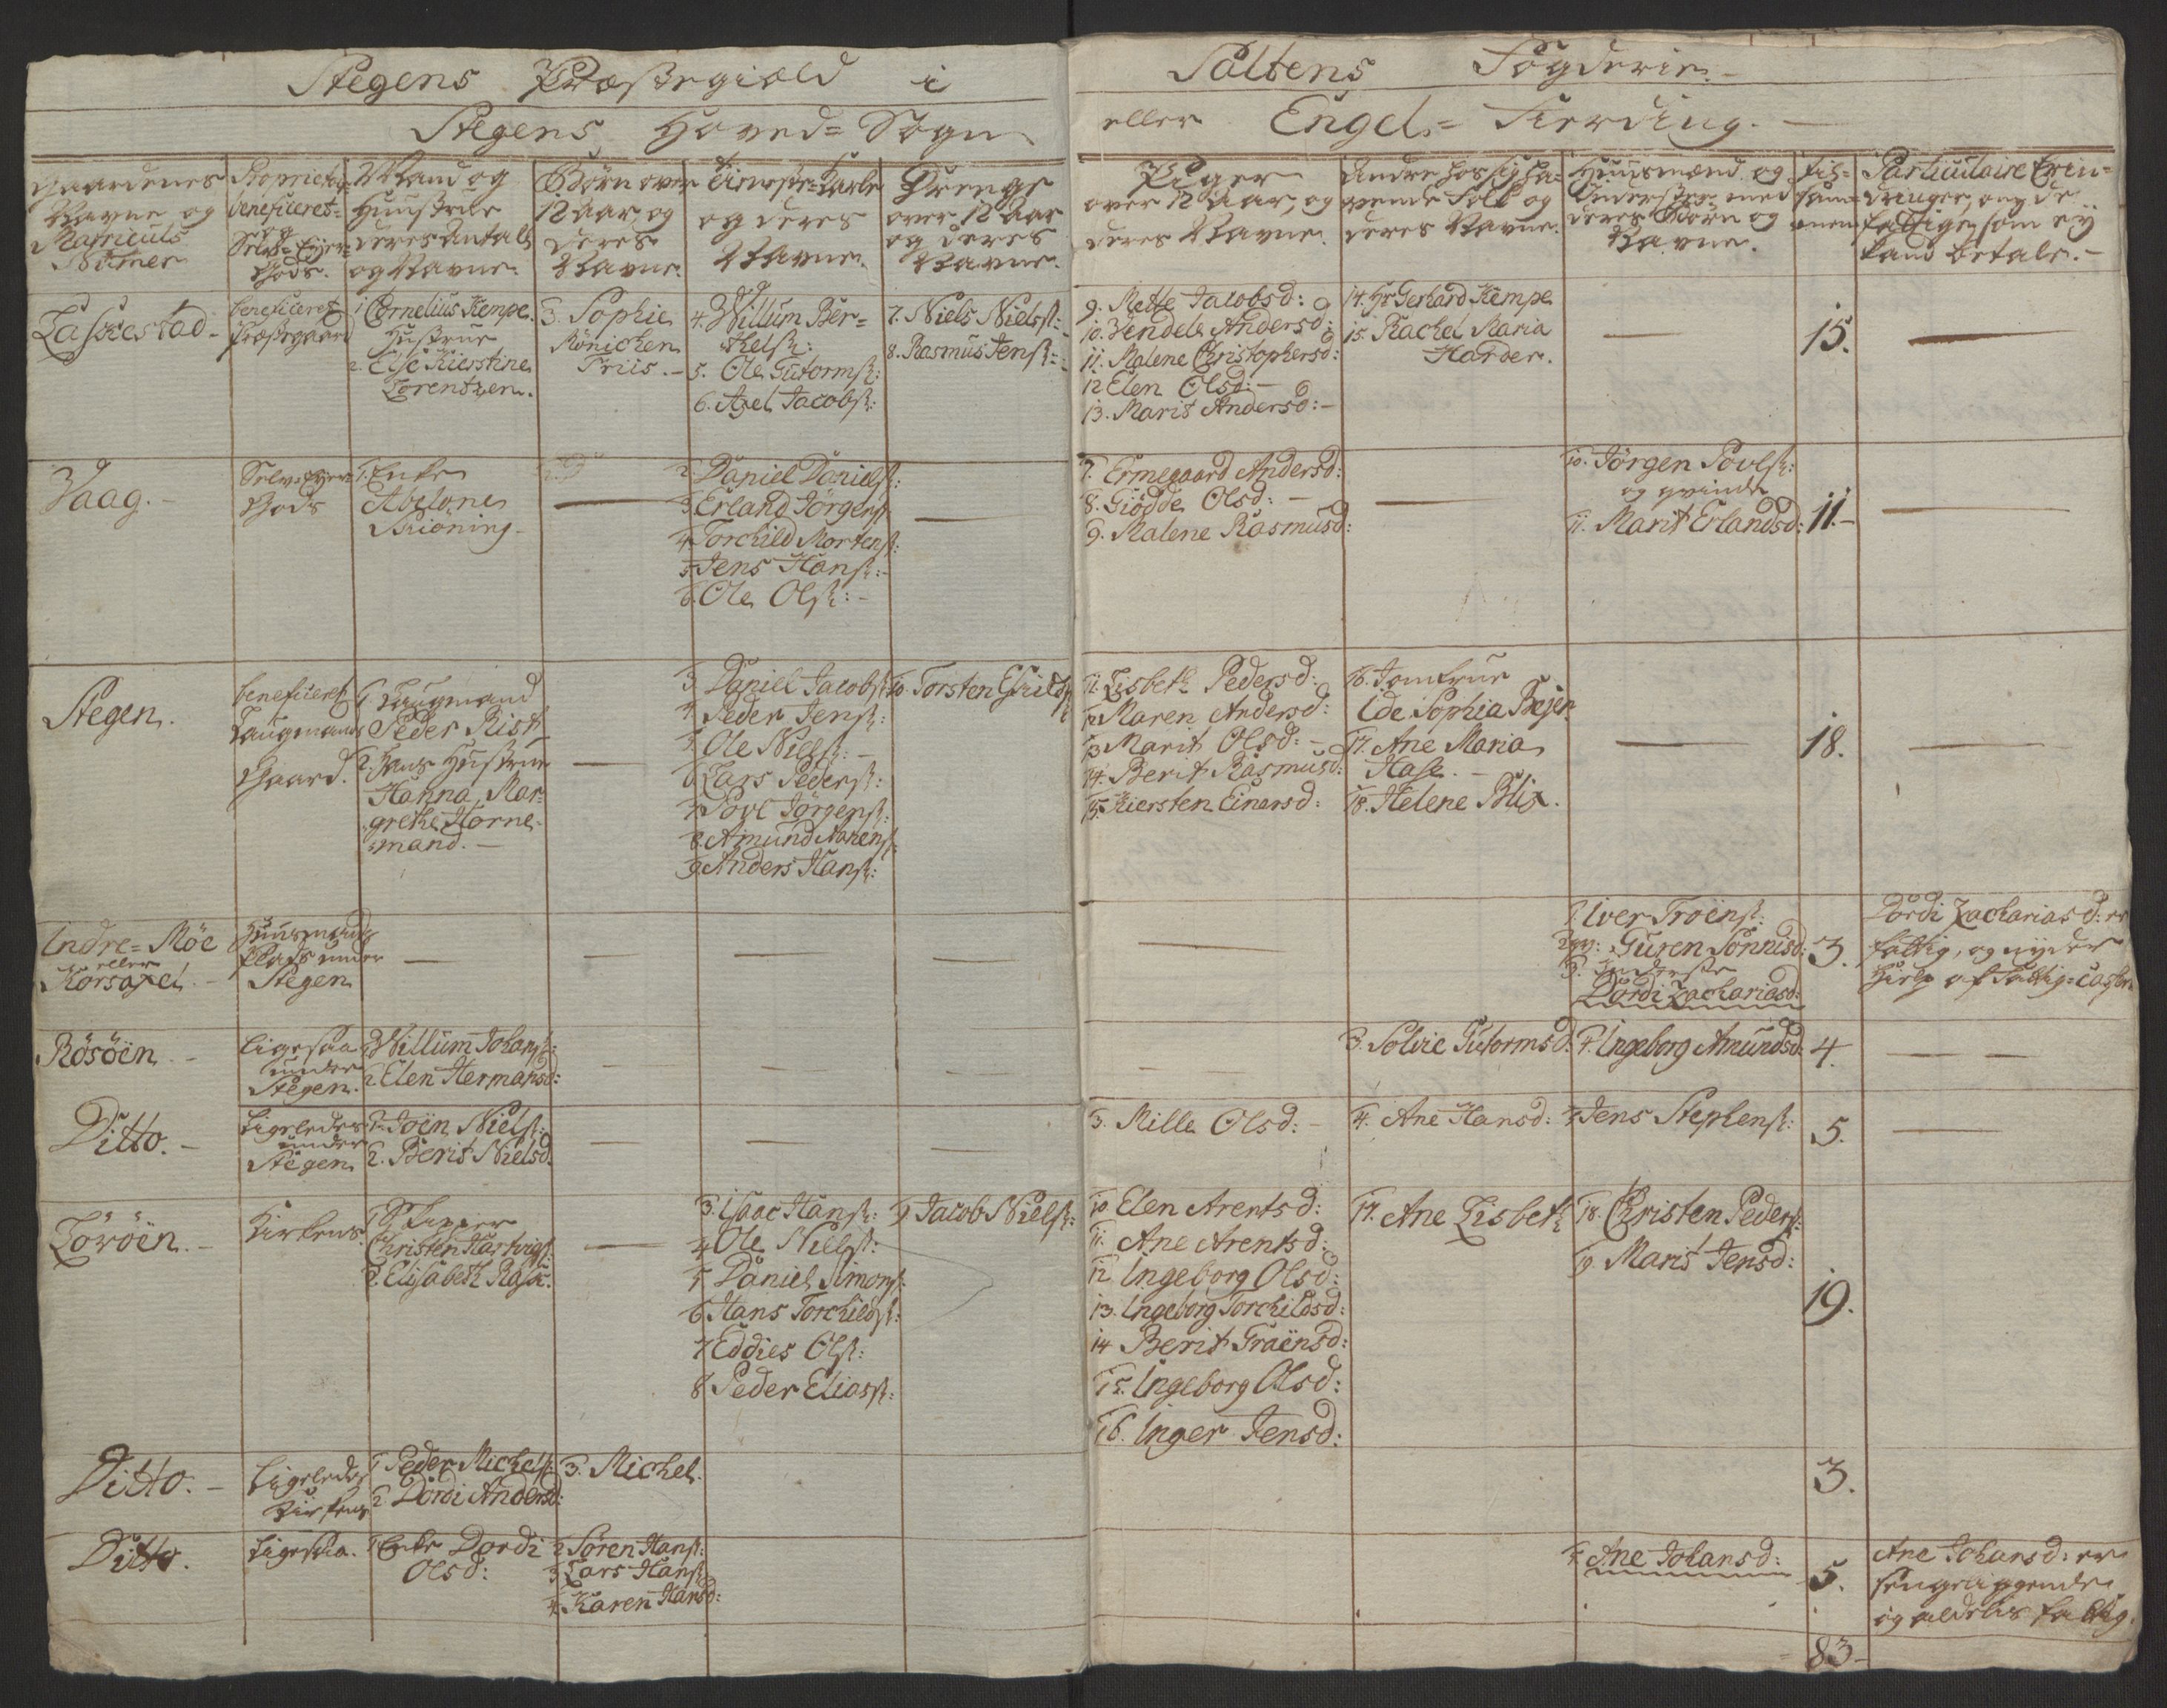 Stegens Præstegield i
Stegens Hoved= Sogn
Saltens Fögderie.
eller Engel= Fierding.
Gaardenes
Navne og
Matriculs
Numer
Proprietair
beneficeret=
og
Selv=Eyer=
Gods.
Mand og
Huustrue
deres Antal
og Navne.
Börn over
12 Aar, og
deres
Navne.
Tieneste=Karle
og deres
Navne.
Drenge
over 12 Aar
og deres
Navne.
Piger
over 12 Aar, og
deres Navne.
Andre hos sig ha=
vende Folk og
deres Navne.
Huusmænd og
Inderster med
deres Börn og
Navne.
Til=
sam=
men
Particulaire Erin=
dringer, om de
fattige som ey
kand betale.
Laskestad
beneficeret
Præstegaard
1. Cornelius Kempe.
Hustrue
2. Else Kierstine
Lorentzen.
3. Sophie
Mönichen
Friis.
4. Willum Ber=
thelss:
5. Ole Gutormss:
6. Axel Jacobss:
7. Niels Nielss:
8. Rasmus Jenss:
9. Mette Jacobsd:
10. Zendele Andersd:
11. Malene Christophersd:
12 Elen Olsd:
13. Marit Andersd:
14. Hr Gerhard Kempe
15. Rachel Maria
Harder.
15.
Vaag.
Selv=Eyer
Gods
1. Enke
Abelone
Skioning
2. Daniel Danielss:
3 Erland Jörgenss
4 Torchild Mortenss:
5 Jens Hanss:
6. Ole Olss:
7. Ermegaard Andersd:
8. Giödde Olsd:
9. Malene Rasmusd:
10. Jörgen Povlss:
og qvinde
11. Marit Erlandsd:
11.
Stegen.
beneficeret
Laugmands
Gaard.
1. Laugmand
Peder Rist
2. Hans Hustrue
Hanna Mar=
grethe Horne=
mand.
3 Daniel Jacobss
4 Peder Jenss:
5 Ole Nielss:
6 Lars Pederss:
7 Povl Jörgenss:
8 Amund Aarenss:
9 Anders Hanss:
10. Torsten Eskildss
11. Lisbeth Pedersd:
12 Maren Andersd:
13 Marit Olsd:
14. Berit Rasmusd:
15. Kiersten Einersd:
16. Jomfrue
Ede Sophia Bejer
17. Ane Maria
Hase.
18. Helene Blix.
18.
Indre=Möe
eller
Korsaxel.
Huusmands
Plads under
Stegen
1. Iver Troenss:
2 qv: Guren Sönnisd:
3. Inderste
Dordi Zachariasd:
3.
Dordi Zachariasd: er
fattig, og nyder
Hielp af Fattig=Cassen
Rösöen
Ligesaa
under
Stegen.
1 Willum Johanss:
2. Elen Hermansd:
3. Solvie Gutormsd:
4. Ingeborg Amundsd:
4.
Ditto.
Ligeledes
under
Stegen
1. Joen Nielss:
2. Berit Nielsd.
3. Mille Olsd:
4. Ane Hansd:
5 Jens Stephenss:
5.
Lövöen.
Kirkens
1 Skipper
Christen Hartvigss:
2. Elisabeth Rask.
3. Isaac Hanss:
4 Ole Nielss:
5 Daniel Simonss:
6 Hans Torchildss:
7 Eddies Olss:
8 Peder Eliass:
9 Jacob Nielss:
10 Elen Arentsd:
11. Ane Arentsd:
12 Ingeborg Olsd:
13. Ingeborg Torchildsd:
14 Berit Graensd:
15. Ingeborg Olsd:
16. Inger Jensd:
17. Ane Lisbeth
18. Christen Pederss:
19 Marit Jensd:
19.
Ditto.
Ligeledes
Kirkens
1 Peder Michelss:
2 Dordi Andersd:
3. Michel.
3.
Ditto.
Ligesaa.
1 Enke Dordi
Olsd:
2 Sören Hanss:
3 Lars Hanss
4. Karen Hansd:
5 Ane Johansd:
5.
Ane Johansd: er
sengeliggende
og aldeles fattig.
83